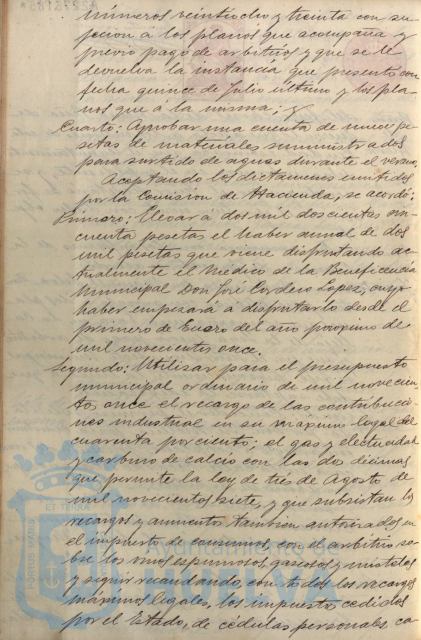 números veintiocho y treinta con su-
jeción a los planos que acompaña y
previo pago de arbitrios y que se le
devuelva la instancia que presentó con
fecha quince de Julio último y los pla-
nos que a la misma; y
Cuarto: Aprobar una cuenta de nueve pe-
setas de materiales suministrados
para surtido de aguas durante el verano.
Aceptando los dictámenes emitidos
por la Comisión de Hacienda, se acordó:
Primero: Elevar a dos mil doscientas cin-
cuenta pesetas el haber anual de dos
mil pesetas que viene disfrutando ac-
tualmente el Médico de la Beneficencia
Municipal Don José Cordero Lopez, cuyo
haber empezará a disfrutarlo desde el
primero de Enero del año próximo de
mil novecientos once.
Segundo: Utilizar para el presupuesto
municipal ordinario de mil novecien-
tos once el recargo de las contribucio-
nes industrial en su máximo legal del
cuarenta por ciento; el gas y electricidad
y carburo de calcio con las dos décimas
que permite la Ley de tres de Agosto de
mil novecientos siete, y que subsistan los
recargos y aumento tambien autorizados en
el impuesto de consumos, con el arbitrio so-
bre los vinos espumosos, gaseosos y mistelas
y seguir recaudando, con todos los recargos
máximos legales, los impuestos cedidos
por el Estado, de cédulas personales, ca-
PORTUS MARIS
ET TERRAE
Ayuntamiento de
HUELVA